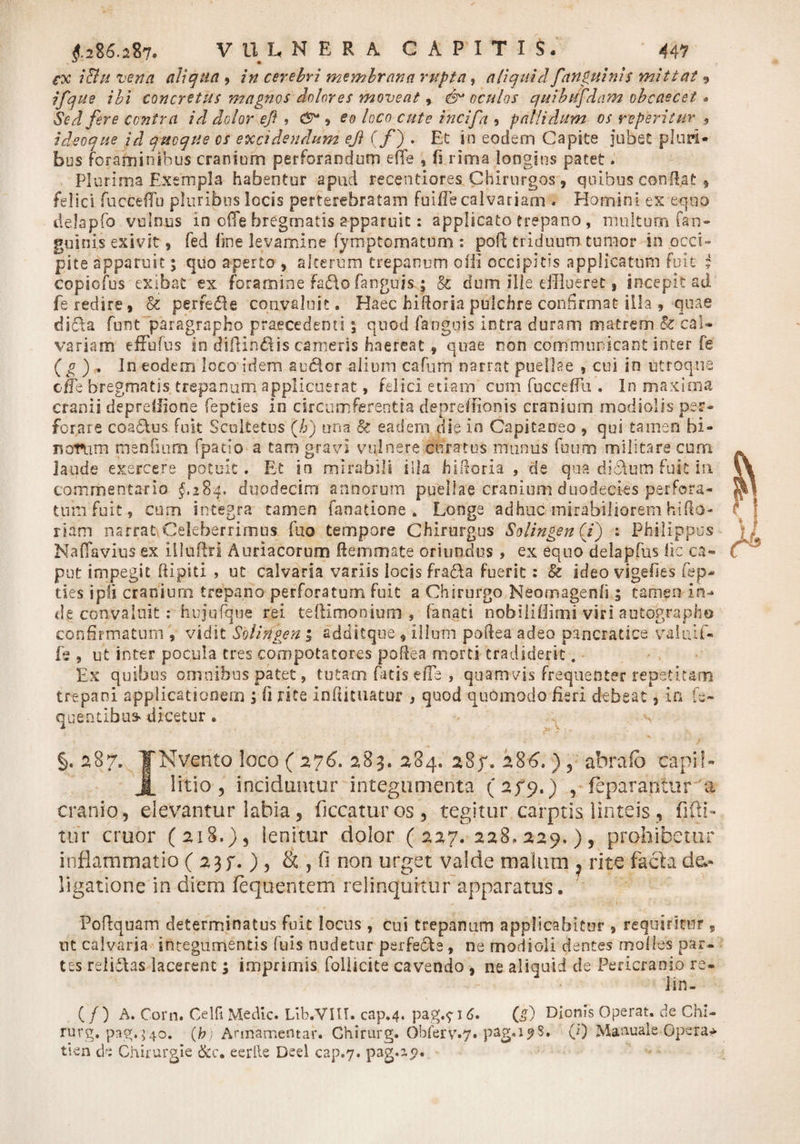 §.286.287. VULNERA CAPITIS. 447
ex ictu vena aliqua, in cerebri membrana rupta, aliquid sanguinis mittat,
isque ibi concretus magnos dolores moveat, & oculos quibusdam obcaecet.
Sed fere contra id dolor est, &, eo loco cute incisa, pallidum os reperitur,
ideoque id quoque os excidendum est (f). Et in eodem Capite jubet pluri-
bus foraminibus cranium perforandum esse, si rima longius patet.
Plurima Exempla habentur apud recentiores Chirurgos, quibus constat,
felici successu pluribus locis perterebratam fuisse calvariam. Homini ex equo
delapso vulnus in osse bregmatis apparuit: applicato trepano, multum san-
guinis exivit, sed sine levamine symptomatum: post triduum tumor in occi-
pite apparuit; quo aperto, alterum trepanum ossi occipitis applicatum fuit;
copiosus exibat ex foramine facto sanguis; & dum ille efflueret, incepit ad
se redire, & perfecte convaluit. Haec historia pulchre confirmat illa, quae
dicta sunt paragrapho praecedenti; quod sanguis intra duram matrem & cal-
variam effusus in distinctis cameris haereat, quae non communicant inter se
(g). In eodem loco idem auctor alium casum narrat puellae, cui in utroque
osse bregmatis trepanum applicuerat, felici etiam cum successu. In maxima
cranii depressione septies in circumferentia depressionis cranium modiolis per-
forare coactus fuit Scultetus (h) una & eadem die in Capitaneo, qui tamen bi-
notum mensium spatio a tam gravi vulnere curatus munus suum militare cum
laude exercere potuit. Et in mirabili illa historia, de qua dictum fuit in
commentario §.284. duodecim annorum puellae cranium duodecies perfora-
tum fuit, cum integra tamen sanatione. Longe adhuc mirabiliorem histo-
riam narrat Celeberrimus suo tempore Chirurgus Solingen (i): Philippus
Nassavius ex illustri Auriacorum stemmate oriundus, ex equo delapsus sic ca-
put impegit stipiti, ut calvaria variis locis fracta fuerit: & ideo vigesies sep-
ties ipsi cranium trepano perforatum fuit a Chirurgo Neomagensi; tamen in-
de convaluit: hujusque rei testimonium, sanati nobilissimi viri autographo
confirmatum, vidit Solingen; additque, illum postea adeo pancratice valuis-
se, ut inter pocula tres compotatores postea morti tradiderit.
Ex quibus omnibus patet, tutam satis esse, quamvis frequenter repetitam
trepani applicationem; si rite instituatur, quod quomodo fieri debeat, in se-
quentibus dicetur.
§. 287. INvento loco (276. 283. 284. 285. 286.), abraso capil-
litio, inciduntur integumenta (259.), separantur a
cranio, elevantur labia, siccatur os, tegitur carptis linteis, sisti-
tur cruor (218.), lenitur dolor (227. 228. 229.), prohibetur
inflammatio (235.), &, si non urget valde malum, rite facta de-
ligatione in diem sequentem relinquitur apparatus.
Postquam determinatus fuit locus, cui trepanum applicabitur, requiritur,
ut calvaria integumentis suis nudetur perfecte, ne modioli dentes molles par-
tes relictas lacerent; imprimis sollicite cavendo, ne aliquid de Pericranio re-
lin-
(f) A. Corn. Celsi Medic. Lib.VIII. cap.4. pag.516. (g) Dionis Operat. de Chi-
rurg. pag.340. (h) Armamentar. Chirurg. Observ.7. pag.198. (i) Manuale Opera-
tien de Chirurgie &c. eerste Deel cap.7. pag.29.